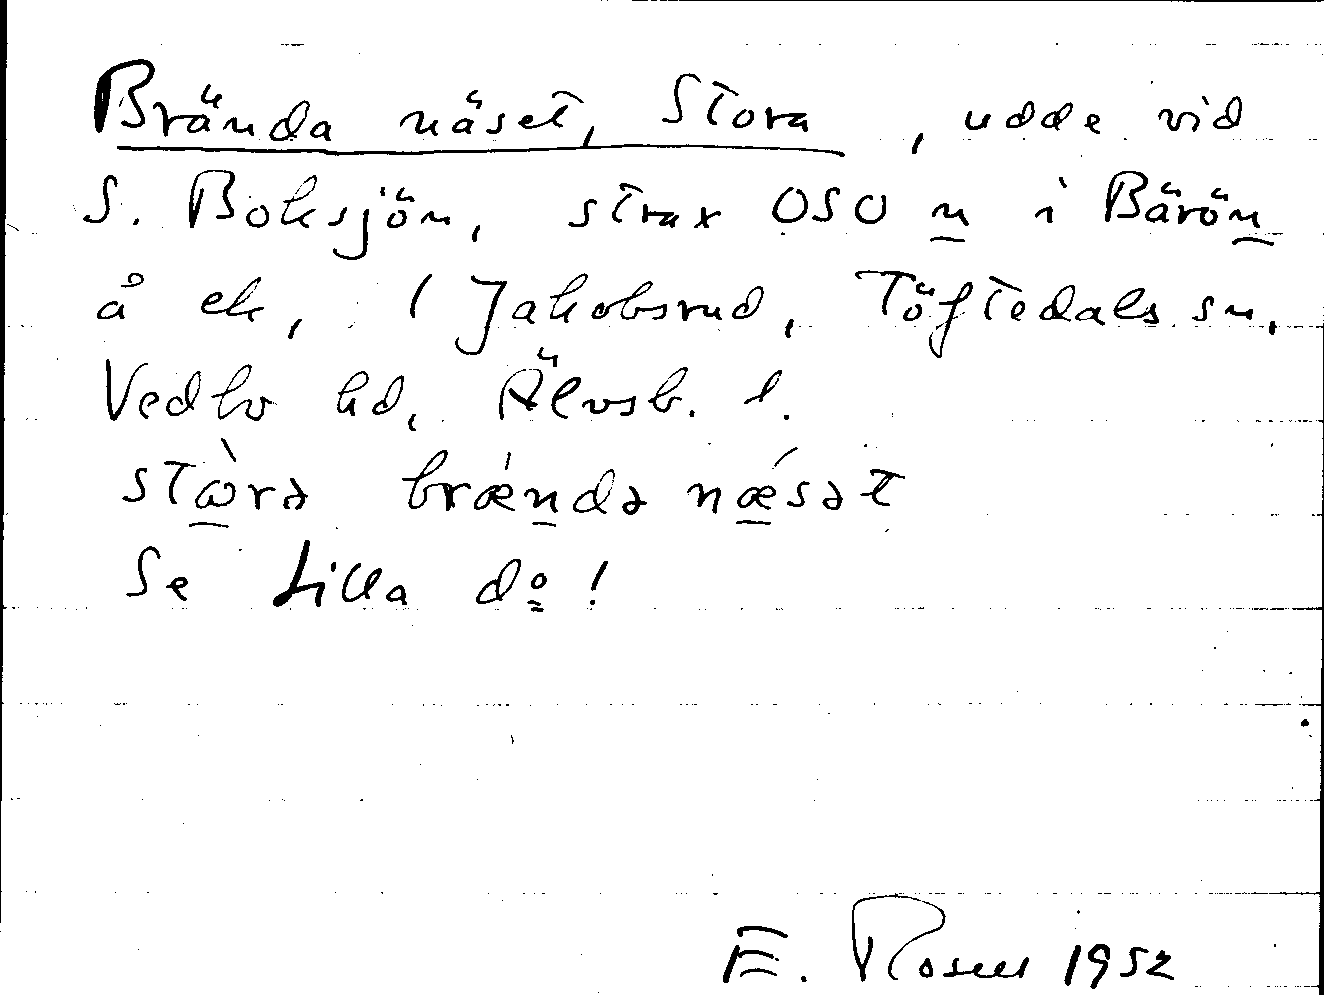 Brända näset, Stora, udde vid
S. Boksjön, strax OSO n i Bärön
å ek, (Jakobsrud, Töftedals sn,
Vedbo hd, Älvsb. l.
stɷ̀rə brǽndə nǽsət
Se Lilla dº!
E. Rosell 1952